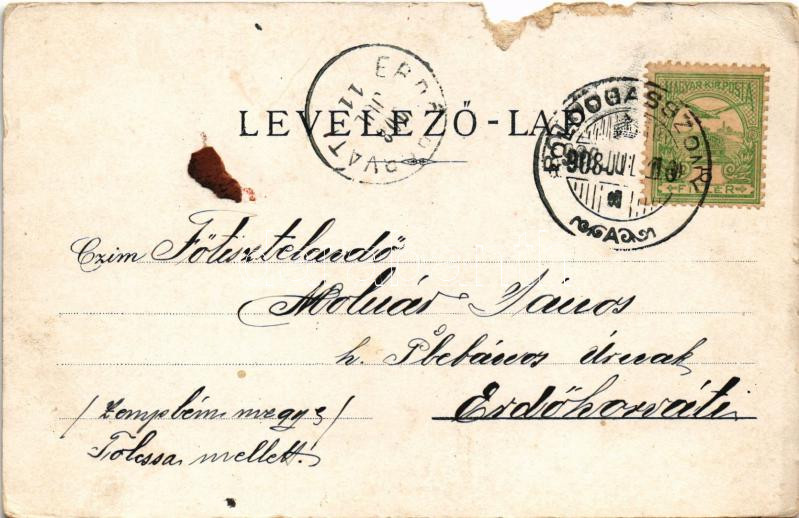 MAGYAR KIR. POSTA
FILLÉR
BOLDOGASSZONY
908 JUL
A
ERDŐHORVÁTI
908 JUL 11
LEVELEZŐ-LAP
Czim Főtisztelendő
Molnár János
h. Plébános Úrnak
Erdőhorváti
/Zemplém megye/
Tolcsva mellett.